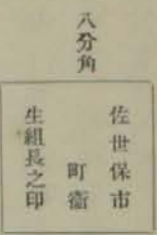 八分角
佐世保市
町衞
生組長之印